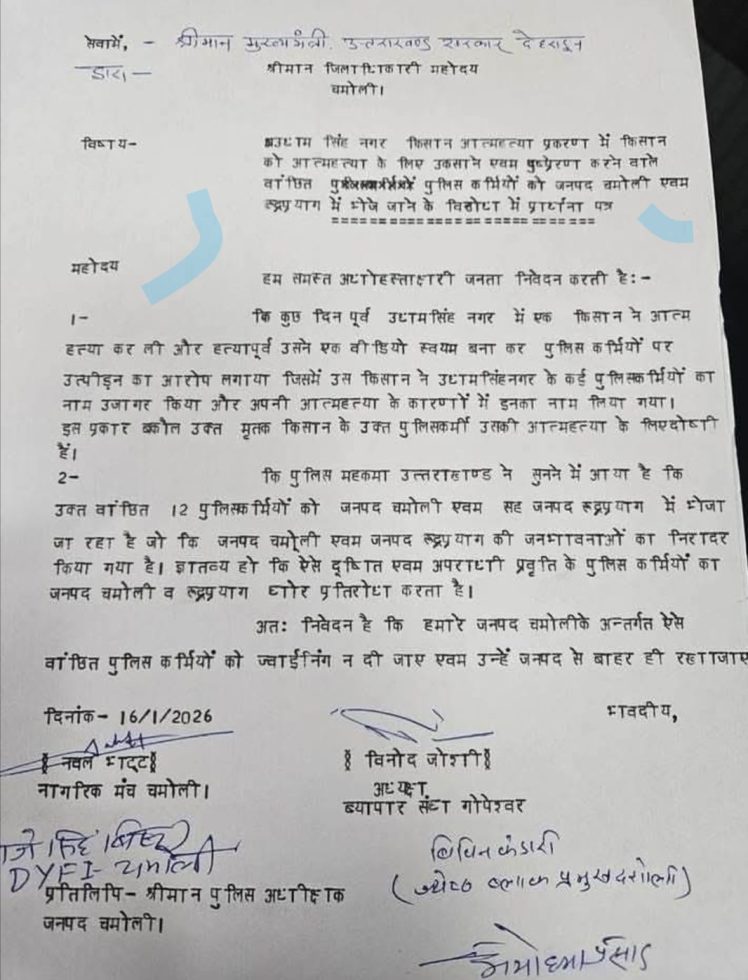 सेवामें, - श्रीमान मुख्यमंत्री, उत्तराखण्ड सरकार, देहरादून
द्वारा - श्रीमान जिलाधिकारी महोदय
चमोली।
विषय- उधाम सिंह नगर किसान आत्महत्या प्रकरण में किसान
को आत्महत्या के लिए उकसाने एवम दुष्प्रेरण करने वाले
वांछित पुलिस कर्मियों को जनपद चमोली एवम
रूद्रप्रयाग में भेजे जाने के विरोध में प्रार्थना पत्र
==========================
महोदय
हम समस्त अधोहस्ताक्षरी जनता निवेदन करती है:-
1- कि कुछ दिन पूर्व उधामसिंह नगर में एक किसान ने आत्म
हत्या कर ली और हत्यापूर्व उसने एक वीडियो स्वयम बना कर पुलिस कर्मियों पर
उत्पीड़न का आरोप लगाया जिसमें उस किसान ने उधामसिंहनगर के कई पुलिसकर्मियों का
नाम उजागर किया और अपनी आत्महत्या के कारणों में इनका नाम लिया गया।
इस प्रकार बकौल उक्त मृतक किसान के उक्त पुलिसकर्मी उसकी आत्महत्या के लिएदोषी
हैं।
2- कि पुलिस महकमा उत्तराखण्ड ने सुनने में आया है कि
उक्त वांछित 12 पुलिसकर्मियों को जनपद चमोली एवम सह जनपद रूद्रप्रयाग में भेजा
जा रहा है जो कि जनपद चमोली एवम जनपद रूद्रप्रयाग की जनभावनाओं का निरादर
किया गया है। ज्ञातव्य हो कि ऐसे दूषित एवम अपराधी प्रवृति के पुलिस कर्मियों का
जनपद चमोली व रूद्रप्रयाग घोर प्रतिरोध करता है।
अतः निवेदन है कि हमारे जनपद चमोलीके अन्तर्गत ऐसे
वांछित पुलिस कर्मियों को ज्वाईनिंग न दी जाए एवम उन्हें जनपद से बाहर ही रखाजाए
दिनांक- 16/1/2026
भवदीय,
नवल भट्ट
नागरिक मंच चमोली।
विनोद जोशी
अध्यक्ष
ब्यापार संघ गोपेश्वर
DYFI - चमोली
विपिन कंडारी
(ज्येष्ठ ब्लाक प्रमुख दशोली)
प्रतिलिपि- श्रीमान पुलिस अधीक्षक
जनपद चमोली।
अयोध्या प्रसाद